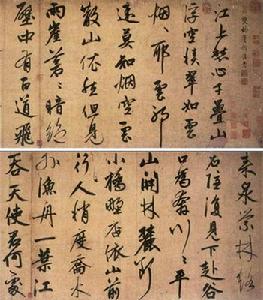 江上愁心千疊山
浮空積翠如雲
煙山耶雲耶
遠莫知煙空雲
散山依然但見
兩崖蒼〻暗絕
壑中有百道飛
來泉縈林絡
石隱復見下赴谷
口為奔川〻平
山開林麓斷
小橋野店依山前
行人稍度喬木
外漁舟一葉江
吞天使君何處